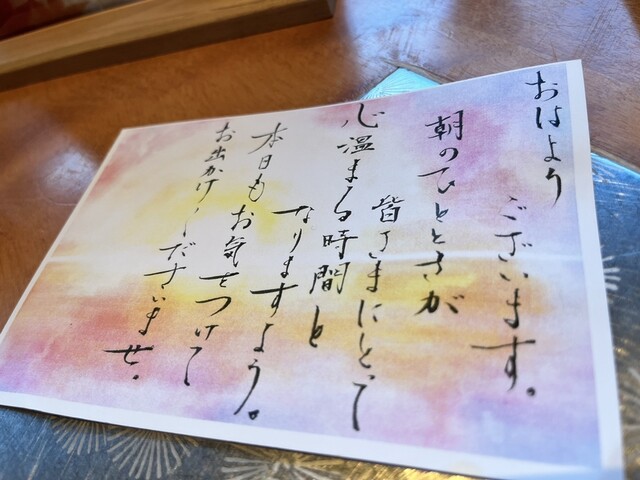 おはよう
ございます。
朝のひとときが
皆さまにとって
心温まる時間と
なりますよう。
本日もお気をつけて
お出かけくださいませ。